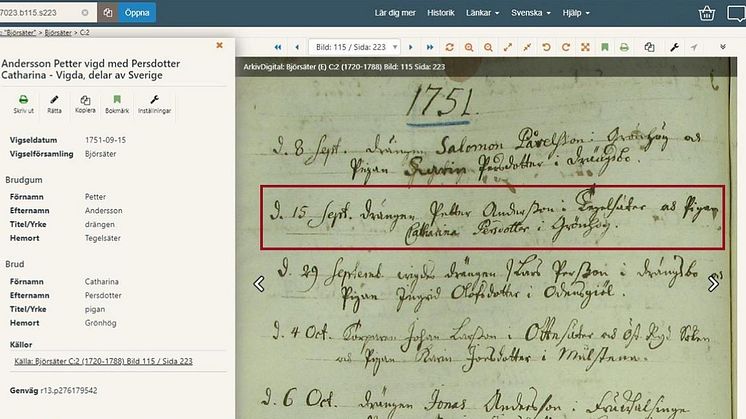 7023.b115.s223
Öppna
Lär dig mer
Historik
Länkar
Svenska
Hjälp
: "Björsäter" > Björsäter > C:2
Andersson Petter vigd med Persdotter
Catharina - Vigda, delar av Sverige
Skriv ut
Rätta
Kopiera
Bokmärk
Inställningar
Vigseldatum 1751-09-15
Vigselförsamling Björsäter
Brudgum
Förnamn Petter
Efternamn Andersson
Titel/Yrke drängen
Hemort Tegelsäter
Brud
Förnamn Catharina
Efternamn Persdotter
Titel/Yrke pigan
Hemort Grönhög
Källor
Källa: Björsäter C:2 (1720-1788) Bild 115 / Sida 223
Genväg r13.p276179542
Bild: 115 / Sida: 223
ArkivDigital: Björsäter (E) C:2 (1720-1788) Bild: 115 Sida: 223
1751.
d. 8 Sept. drängen Salomon Påvelsson i Grönhög och
Pigan Karin Persdotter i Drängsbo.
d. 15 Sept. drängen Petter Andersson i Tegelsäter och Pigan
Catharina Persdotter i Grönhög.
d. 29 Septemb. vigdes drängen Lars Persson i drängsbo
Pigan Ingrid Olofsdotter i
d. 4 Oct. Johan Larsson i Ottensäter
Pigan Karin i
d. 6 Oct. drängen Jonas Andersson i